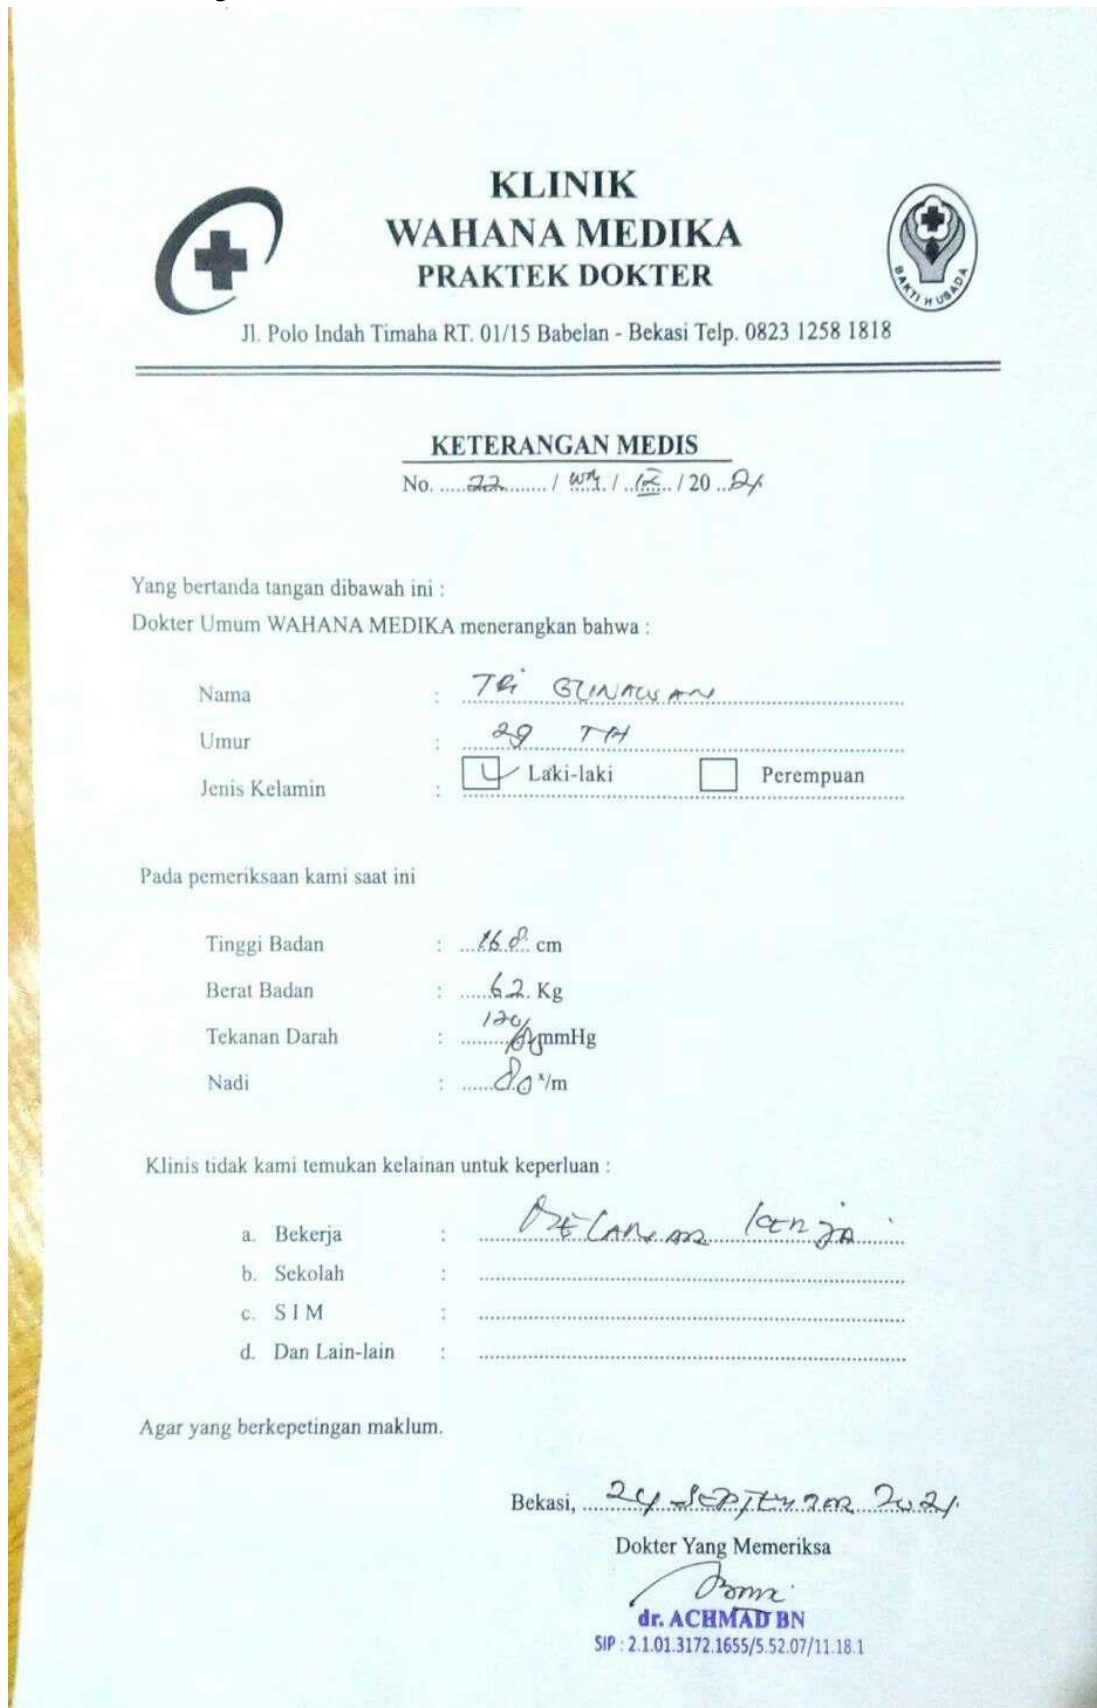 KLINIK
WAHANA MEDIKA
PRAKTEK DOKTER
BAKTI HUSADA
Jl. Polo Indah Timaha RT. 01/15 Babelan - Bekasi Telp. 0823 1258 1818
KETERANGAN MEDIS
No. .....22......... / WM. / ..IX.. / 20 ..21
Yang bertanda tangan dibawah ini :
Dokter Umum WAHANA MEDIKA menerangkan bahwa :
Nama : TRI GUNAWAN
Umur : 29 TH
Jenis Kelamin : Laki-laki Perempuan
Pada pemeriksaan kami saat ini
Tinggi Badan : 168 cm
Berat Badan : 62 Kg
Tekanan Darah : 120/ mmHg
Nadi : 80 x/m
Klinis tidak kami temukan kelainan untuk keperluan :
a. Bekerja : MELAMAR KERJA
b. Sekolah :
c. S I M :
d. Dan Lain-lain :
Agar yang berkepetingan maklum.
Bekasi, 24 SEPTEMBER 2021
Dokter Yang Memeriksa
dr. ACHMAD BN
SIP : 2.1.01.3172.1655/5.52.07/11.18.1